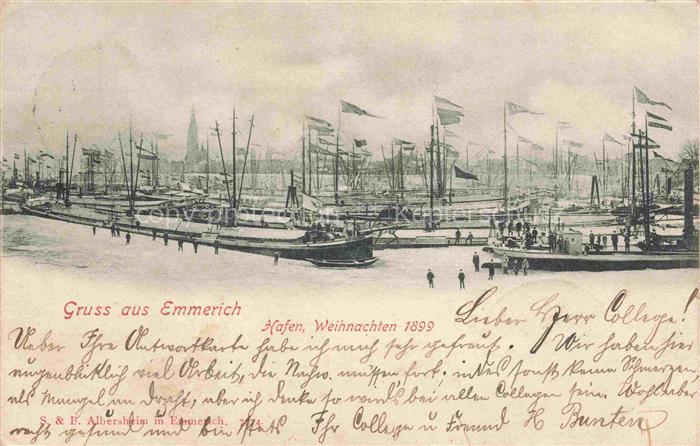 Gruss aus Emmerich
Hafen, Weihnachten 1899
Lieber Herr College!
Ueber Ihre Antwortkarte habe ich mich sehr gefreut. Wir haben hier
augenblicklich viel Arbeit, die müssen fort; indes sonst keine Schmerzen
als Mangel an Draht, aber ich denke so wird's bei allen Collegen sein.
recht gesund und bin stets Ihr College u Freund H Bunten
S. & F. Albersheim in Emmerich.